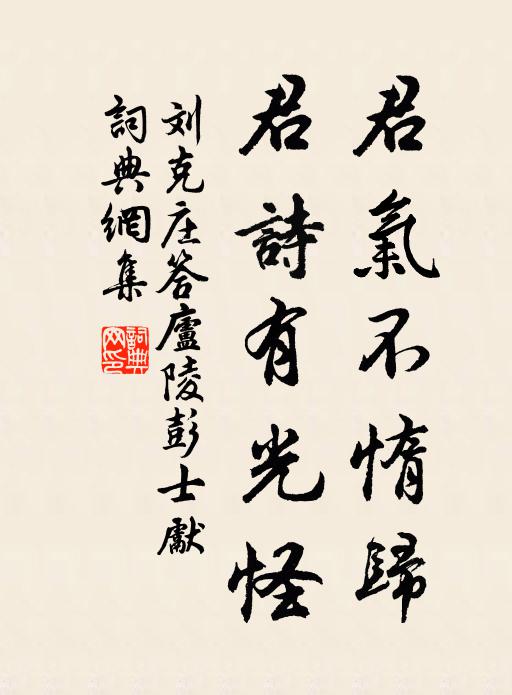 君氣不惰歸
君詩有光怪
刘克庄答廬陵彭士獻
詞典網集
詞典網印